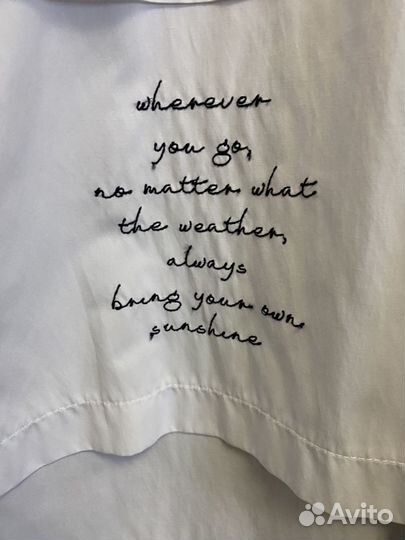 wherever
you go,
no matter what
the weather,
always
bring your own
sunshine
Avito